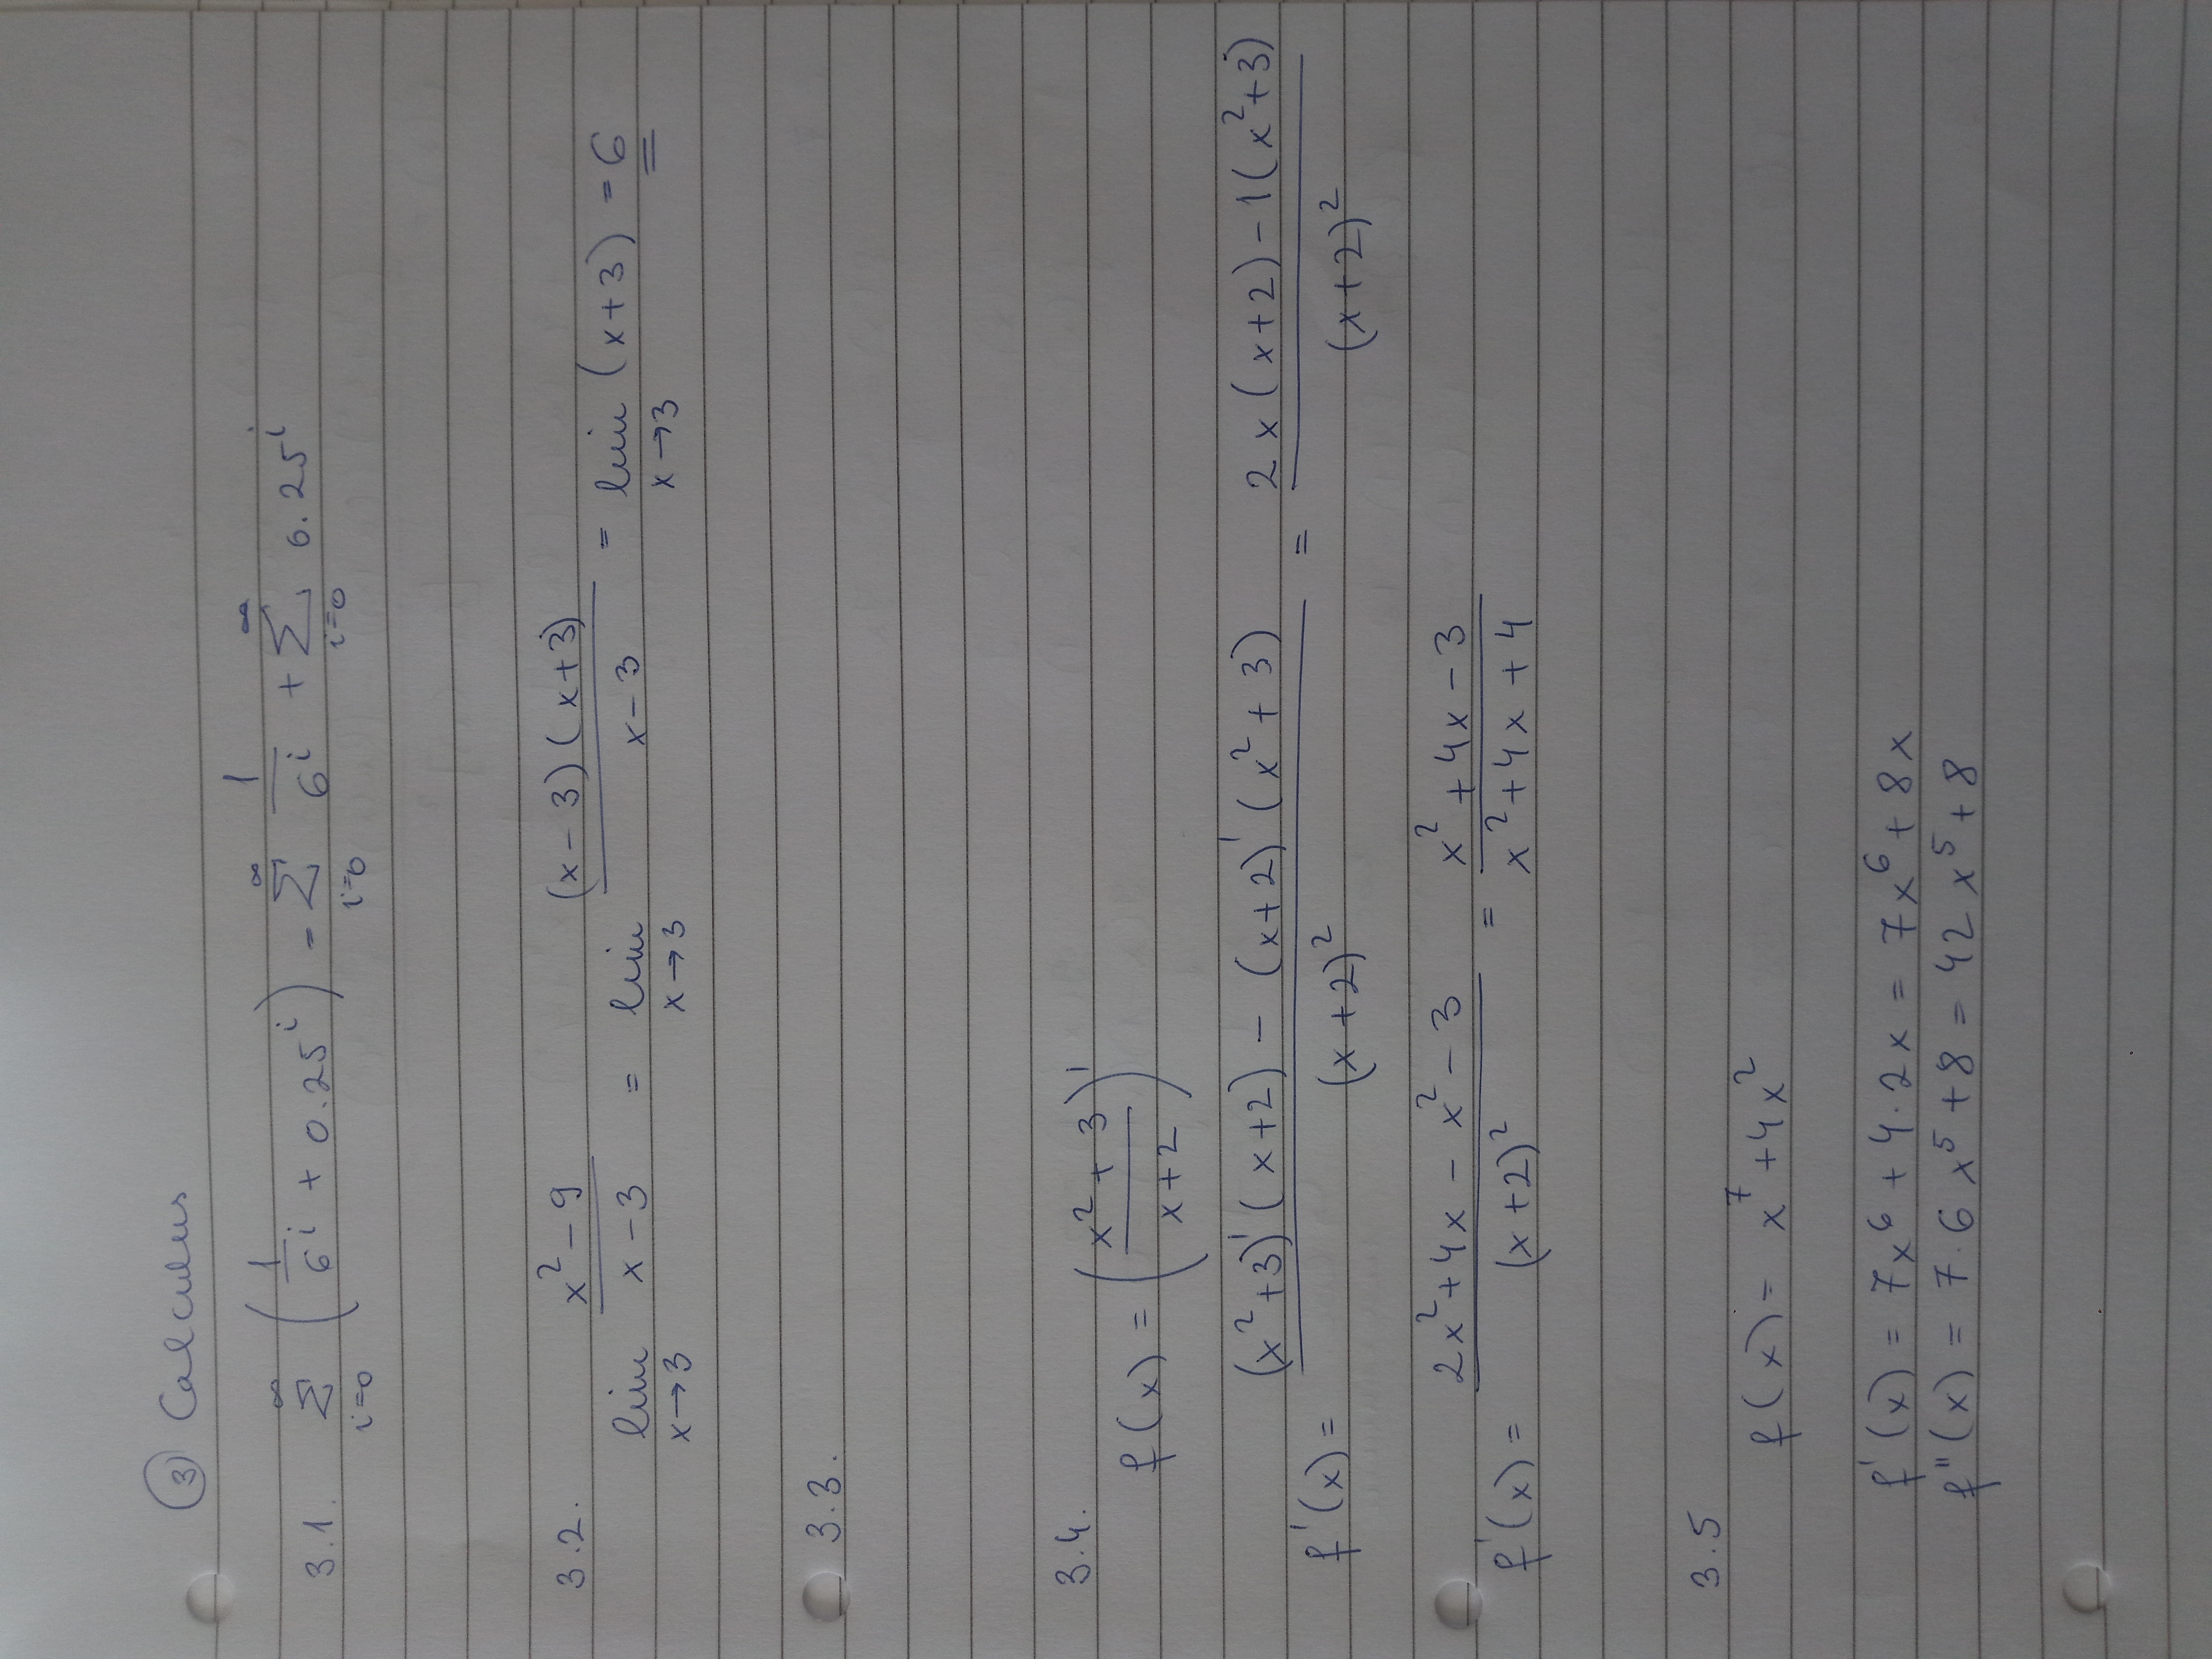 ③ Calculus
3.1. ∑_{i=0}^{∞} (1/6^i + 0.25^i) = ∑_{i=0}^{∞} 1/6^i + ∑_{i=0}^{∞} 0.25^i
3.2. lim_{x→3} (x² - 9)/(x - 3) = lim_{x→3} ((x - 3)(x + 3))/(x - 3) = lim_{x→3} (x + 3) = 6
3.3.
3.4.
f(x) = ((x² + 3)/(x + 2))'
f'(x) = ((x² + 3)'(x + 2) - (x + 2)'(x² + 3))/(x + 2)² = (2x(x + 2) - 1(x² + 3))/(x + 2)²
f'(x) = (2x² + 4x - x² - 3)/(x + 2)² = (x² + 4x - 3)/(x² + 4x + 4)
3.5
f(x) = x⁷ + 4x²
f'(x) = 7x⁶ + 4·2x = 7x⁶ + 8x
f''(x) = 7·6x⁵ + 8 = 42x⁵ + 8